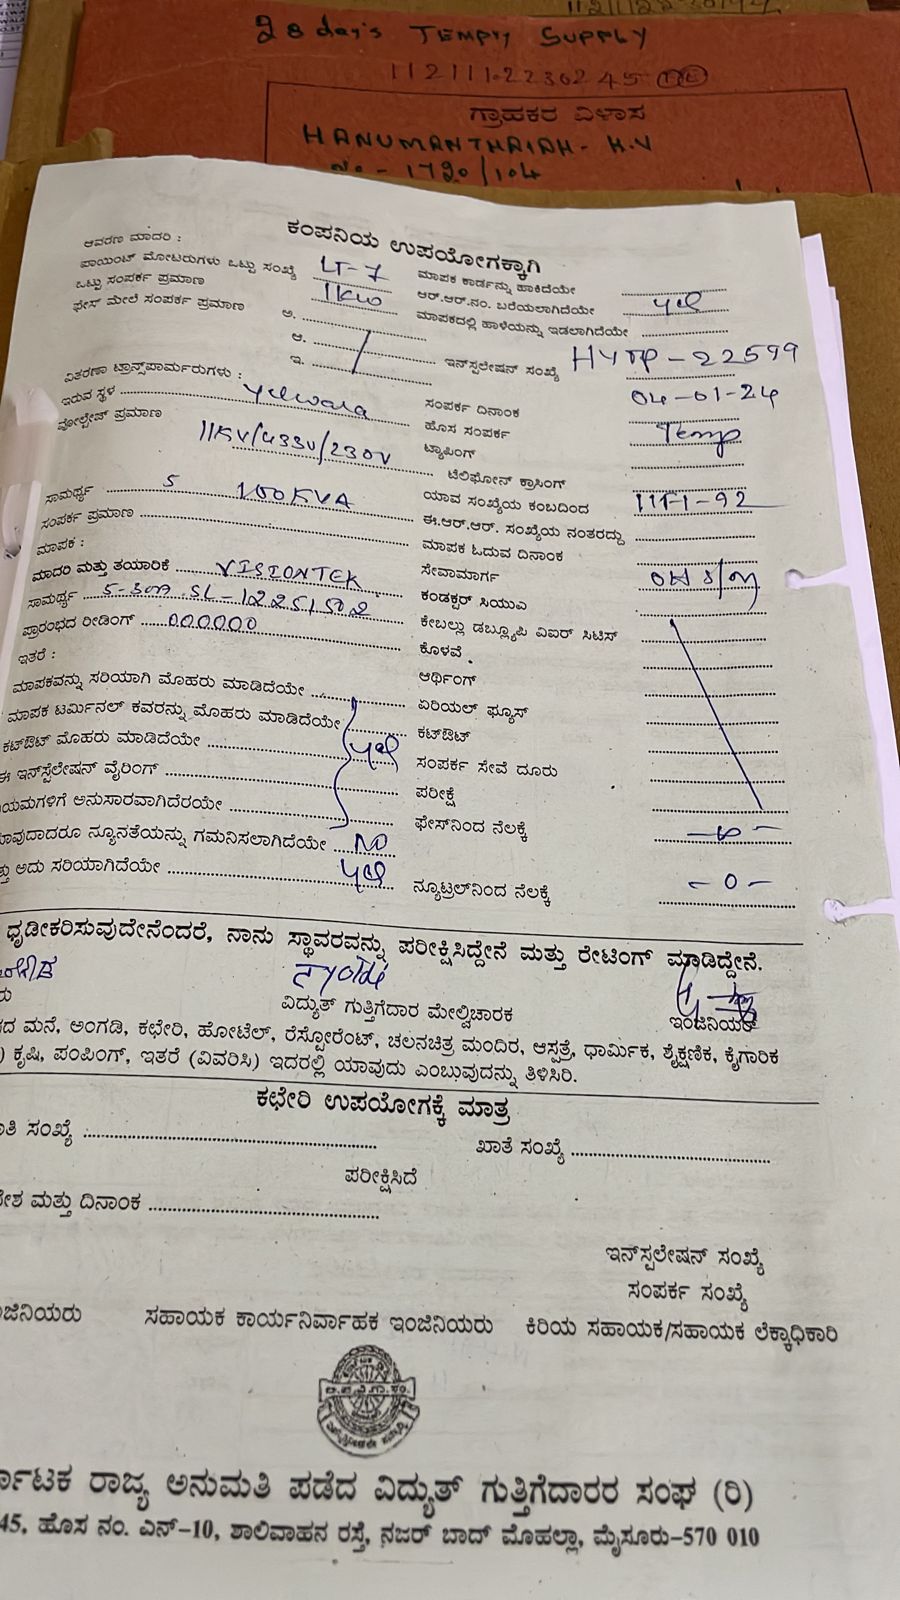 28 day's TEMPY SUPPLY
ಗ್ರಾಹಕರ ವಿಳಾಸ
HANUMANTHAIAH - H.V
ನಂ - 1720/104
ಕಂಪನಿಯ ಉಪಯೋಗಕ್ಕಾಗಿ
ಆವರಣ ಮಾದರಿ :
ಪಾಯಿಂಟ್ ಮೋಟರುಗಳು ಒಟ್ಟು ಸಂಖ್ಯೆ LT-7 ಮಾಪಕ ಕಾರ್ಡನ್ನು ಹಾಕಿದೆಯೇ
ಒಟ್ಟು ಸಂಪರ್ಕ ಪ್ರಮಾಣ 1KW ಆರ್.ಆರ್.ನಂ. ಬರೆಯಲಾಗಿದೆಯೇ yes
ಫೇಸ್ ಮೇಲೆ ಸಂಪರ್ಕ ಪ್ರಮಾಣ ಅ. ಮಾಪಕದಲ್ಲಿ ಹಾಳೆಯನ್ನು ಇಡಲಾಗಿದೆಯೇ
ಆ.
ಇ. ಇನ್‌ಸ್ಟಲೇಷನ್ ಸಂಖ್ಯೆ HYTP-22599
ವಿತರಣಾ ಟ್ರಾನ್ಸ್‌ಪಾರ್ಮರುಗಳು :
ಇರುವ ಸ್ಥಳ Yelwala ಸಂಪರ್ಕ ದಿನಾಂಕ 04-01-24
ವೋಲ್ಟೇಜ್ ಪ್ರಮಾಣ 11KV/433V/230V ಹೊಸ ಸಂಪರ್ಕ Temp
ಟ್ಯಾಪಿಂಗ್
ಟೆಲಿಫೋನ್ ಕ್ರಾಸಿಂಗ್
ಸಾಮರ್ಥ್ಯ 5 100KVA ಯಾವ ಸಂಖ್ಯೆಯ ಕಂಬದಿಂದ
ಸಂಪರ್ಕ ಪ್ರಮಾಣ ಈ.ಆರ್.ಆರ್. ಸಂಖ್ಯೆಯ ನಂತರದ್ದು
ಮಾಪಕ : ಮಾಪಕ ಓದುವ ದಿನಾಂಕ
ಮಾದರಿ ಮತ್ತು ತಯಾರಿಕೆ VISIONTEK ಸೇವಾಮಾರ್ಗ OH S/M
ಸಾಮರ್ಥ್ಯ SL-12251502 ಕಂಡಕ್ಟರ್ ಸಿಯುವಿ
ಪ್ರಾರಂಭದ ರೀಡಿಂಗ್ 000000 ಕೇಬಲ್ಲು ಡಬ್ಲ್ಯೂಪಿ ವಿಐರ್ ಸಿಟಿಸ್
ಇತರೆ : ಕೊಳವೆ
ಮಾಪಕವನ್ನು ಸರಿಯಾಗಿ ಮೊಹರು ಮಾಡಿದೆಯೇ ಆರ್ಥಿಂಗ್
ಮಾಪಕ ಟರ್ಮಿನಲ್ ಕವರನ್ನು ಮೊಹರು ಮಾಡಿದೆಯೇ ಏರಿಯಲ್ ಫ್ಯೂಸ್
ಕಟ್‌ಔಟ್ ಮೊಹರು ಮಾಡಿದೆಯೇ yes ಕಟ್‌ಔಟ್
ಈ ಇನ್‌ಸ್ಟೆಲೇಷನ್ ವೈರಿಂಗ್ ಸಂಪರ್ಕ ಸೇವೆ ದೂರು
ಯಮಗಳಿಗೆ ಅನುಸಾರವಾಗಿದೆರಯೇ ಪರೀಕ್ಷೆ
ಾವುದಾದರೂ ನ್ಯೂನತೆಯನ್ನು ಗಮನಿಸಲಾಗಿದೆಯೇ NO ಫೇಸ್‌ನಿಂದ ನೆಲಕ್ಕೆ
ತ್ತು ಅದು ಸರಿಯಾಗಿದೆಯೇ yes ನ್ಯೂಟ್ರಲ್‌ನಿಂದ ನೆಲಕ್ಕೆ - 0 -
ಧೃಡೀಕರಿಸುವುದೇನೆಂದರೆ, ನಾನು ಸ್ಥಾವರವನ್ನು ಪರೀಕ್ಷಿಸಿದ್ದೇನೆ ಮತ್ತು ರೇಟಿಂಗ್ ಮಾಡಿದ್ದೇನೆ.
ರು ವಿದ್ಯುತ್ ಗುತ್ತಿಗೆದಾರ ಮೇಲ್ವಿಚಾರಕ ಇಂಜಿನಿಯರ್
ದ ಮನೆ, ಅಂಗಡಿ, ಕಛೇರಿ, ಹೋಟೆಲ್, ರೆಸ್ಟೋರೆಂಟ್, ಚಲನಚಿತ್ರ ಮಂದಿರ, ಆಸ್ಪತ್ರೆ, ಧಾರ್ಮಿಕ, ಶೈಕ್ಷಣಿಕ, ಕೈಗಾರಿಕ
) ಕೃಷಿ, ಪಂಪಿಂಗ್, ಇತರೆ (ವಿವರಿಸಿ) ಇದರಲ್ಲಿ ಯಾವುದು ಎಂಬುವುದನ್ನು ತಿಳಿಸಿರಿ.
ಕಛೇರಿ ಉಪಯೋಗಕ್ಕೆ ಮಾತ್ರ
ತಿ ಸಂಖ್ಯೆ ಖಾತೆ ಸಂಖ್ಯೆ
ಪರೀಕ್ಷಿಸಿದೆ
ೇಶ ಮತ್ತು ದಿನಾಂಕ
ಇನ್‌ಸ್ಟಲೇಷನ್ ಸಂಖ್ಯೆ
ಸಂಪರ್ಕ ಸಂಖ್ಯೆ
ಜಿನಿಯರು ಸಹಾಯಕ ಕಾರ್ಯನಿರ್ವಾಹಕ ಇಂಜಿನಿಯರು ಕಿರಿಯ ಸಹಾಯಕ/ಸಹಾಯಕ ಲೆಕ್ಕಾಧಿಕಾರಿ
ರ್ನಾಟಕ ರಾಜ್ಯ ಅನುಮತಿ ಪಡೆದ ವಿದ್ಯುತ್ ಗುತ್ತಿಗೆದಾರರ ಸಂಘ (ರಿ)
45, ಹೊಸ ನಂ. ಎನ್-10, ಶಾಲಿವಾಹನ ರಸ್ತೆ, ನಜರ್ ಬಾದ್ ಮೊಹಲ್ಲಾ, ಮೈಸೂರು-570 010